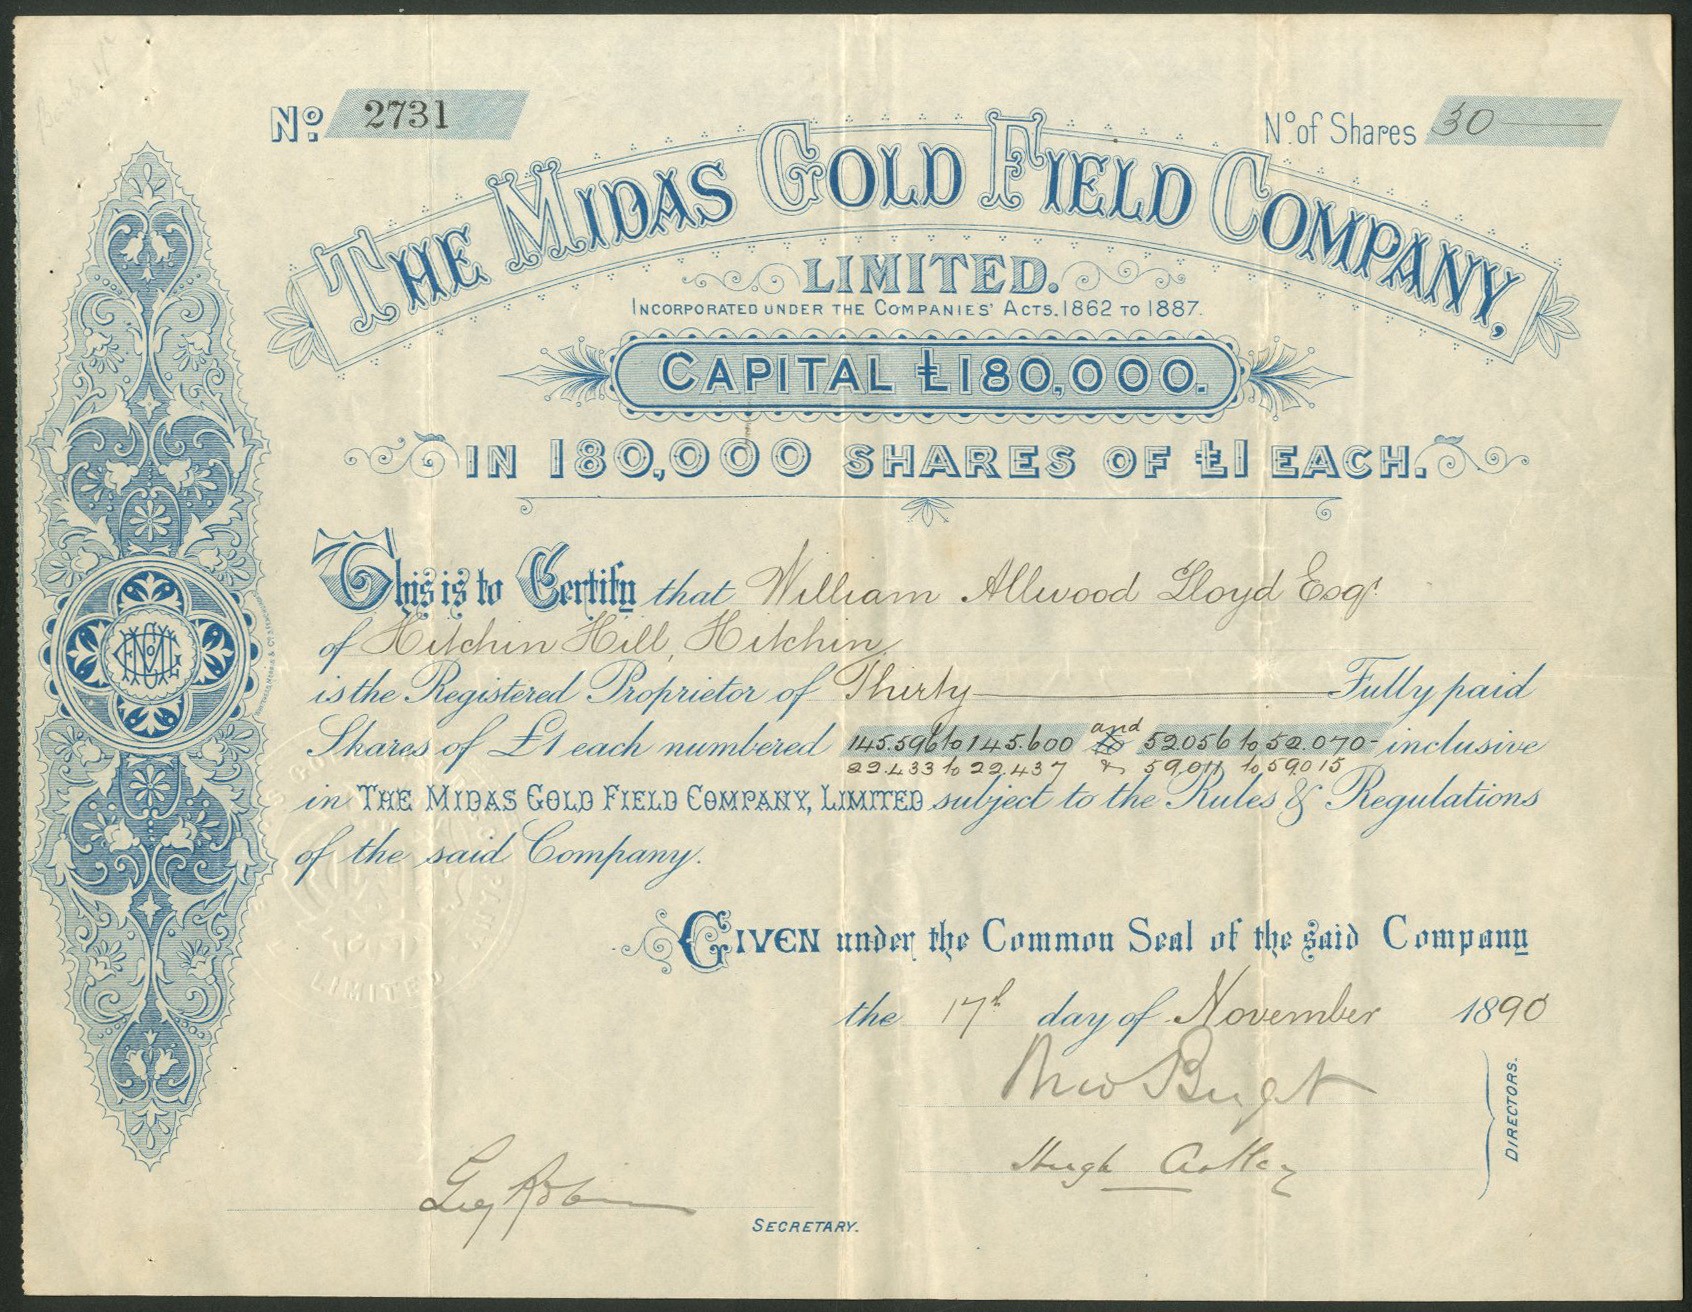 No. 2731
No. of Shares 30
THE MIDAS GOLD FIELD COMPANY,
LIMITED.
INCORPORATED UNDER THE COMPANIES' ACTS. 1862 TO 1887.
CAPITAL £180,000.
IN 180,000 SHARES OF £1 EACH.
This is to Certify that William Allwood Lloyd Esqr
of Hitchin Hill, Hitchin
is the Registered Proprietor of Thirty Fully paid
Shares of £1 each numbered 145.596 to 145.600 and 52056 to 52.070 - inclusive
22.433 to 22.437 & 59.011 to 59.015
in THE MIDAS GOLD FIELD COMPANY, LIMITED subject to the Rules & Regulations
of the said Company.
GIVEN under the Common Seal of the said Company
the 17th day of November 1890
Hugh
DIRECTORS.
SECRETARY.
LIMITED